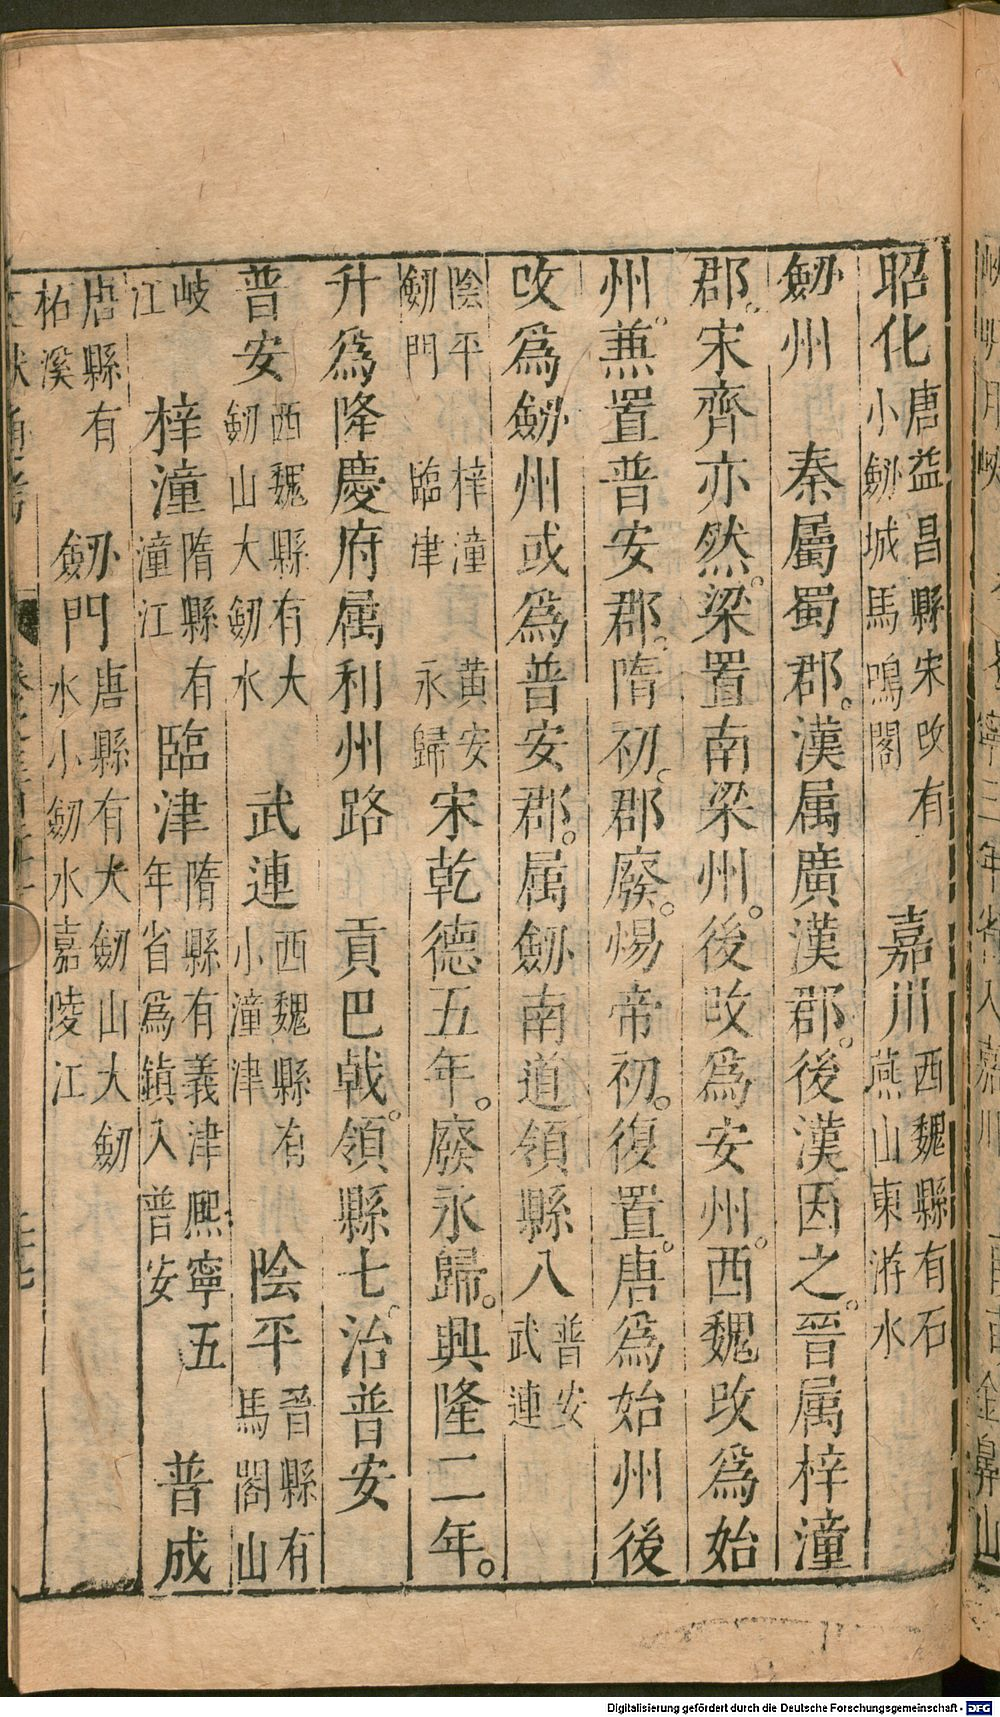 昭化唐益昌縣宋改有小劒城馬鳴閣　嘉川西魏縣有石燕山東游水
劒州　秦屬蜀郡。漢属廣漢郡。後漢因之。晉属梓潼
郡。宋齊亦然。梁置南梁州。後改為安州。西魏改爲始
州。兼置普安郡。隋初、郡廢。煬帝初。復置。唐爲始州後
改爲劒州或爲普安郡。属劒南道領縣八普安武連
陰平劒門　梓潼臨津　黄安永歸　宋乾德五年。廢永歸。興隆二年。
升爲隆慶府属利州路　貢巴戟。領縣七。治普安
普安西魏縣有大劒山大劒水　武連西魏縣有小潼津　陰平晋縣有馬閣山
岐江　梓潼隋縣有潼江　臨津隋縣有義津熈寧五年省爲鎮入普安　普成
唐縣有柘溪　劒門唐縣有大劒山大劒水小劒水嘉陵江
Digitalisierung gefördert durch die Deutsche Forschungsgemeinschaft - DFG